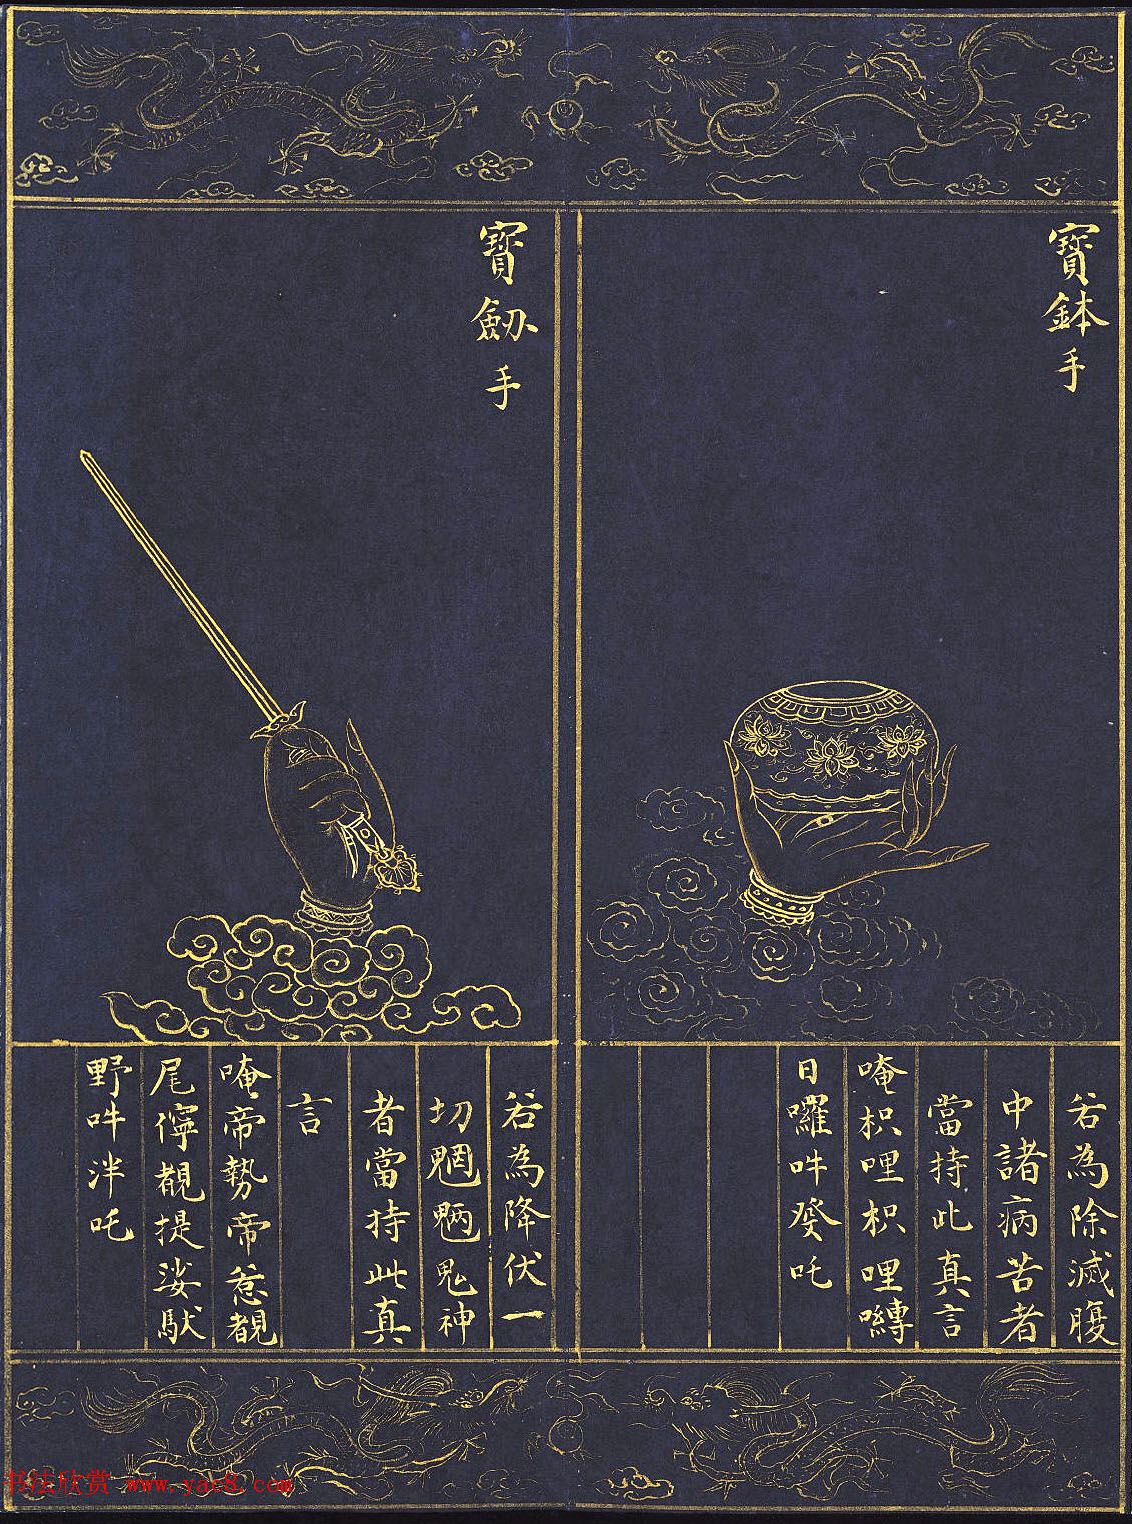 寶鉢手
若為除滅腹
中諸病苦者
當持此真言
唵枳哩枳哩嚩
日囉吽癹吒
寶劔手
若為降伏一
切魍魎鬼神
者當持此真
言
唵帝勢帝惹覩
尾儜覩提娑馱
野吽泮吒
书法欣赏 www.yac8.com